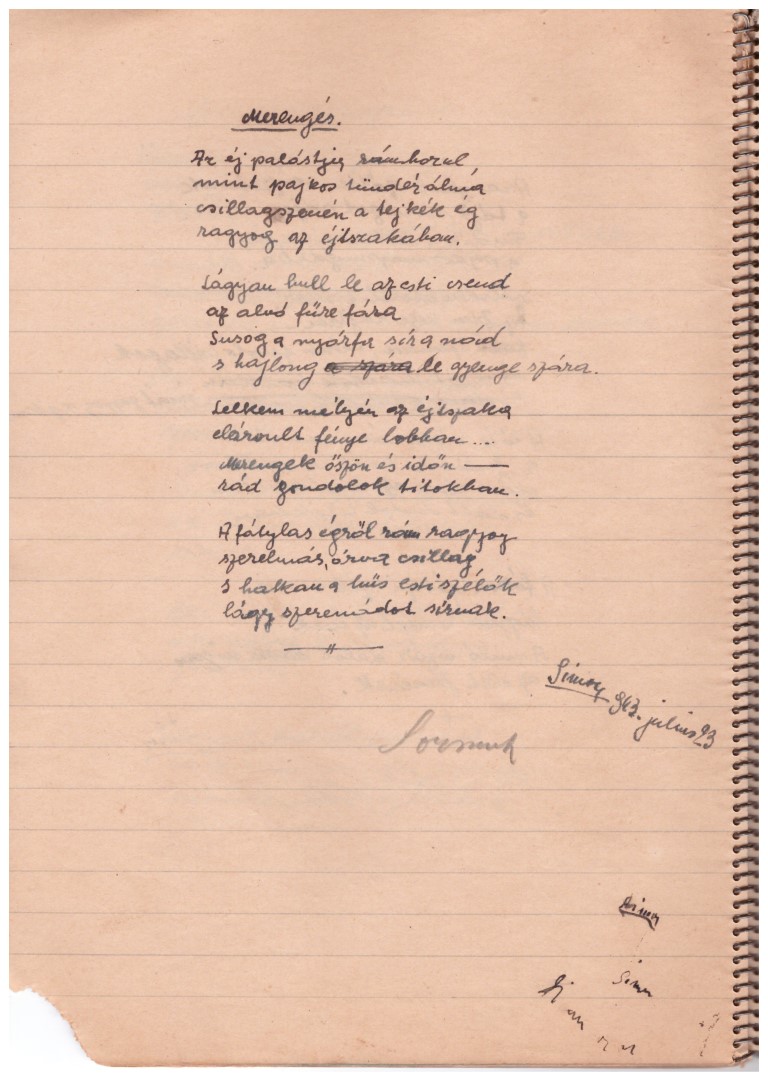 Merengés.
Az éj palástja rámborul,
mint pajkos tündér álma
csillagszemén a tejkék ég
ragyog az éjtszakában.
Lágyan hull le az esti csend
az alvó fűre fára
Susog a nyárfa sír a nád
s hajlong a szára le gyenge szára.
Lelkem mélyén az éjtszaka
elárvult fénye lobban ...
Merengek őszön és időn —
rád gondolok titokban.
A fátylas égről rám ragyog
szerelmás, árva csillag
s halkan a hűs esti szélők
lágy szerenádot sírnak.
Simon 943. július 23
Simon